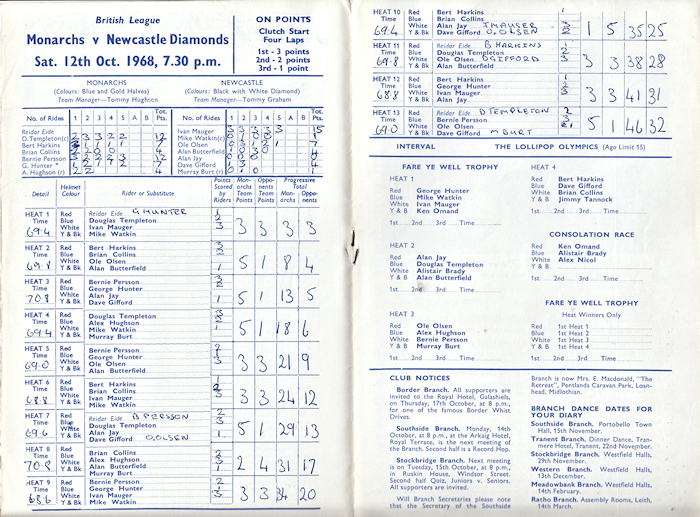 British League
Monarchs v Newcastle Diamonds
Sat. 12th Oct. 1968, 7.30 p.m.
ON POINTS
Clutch Start
Four Laps
1st - 3 points
2nd - 2 points
3rd - 1 point
MONARCHS
(Colours: Blue and Gold Halves)
Team Manager—Tommy Hughson
NEWCASTLE
(Colours: Black with White Diamond)
Team Manager—Tommy Graham
No. of Rides 1 2 3 4 5 A B Tot. Pts.
No. of Rides 1 2 3 4 5 A B Tot. Pts.
Reidar Eide
D. Templeton(c)
Bert Harkins
Brian Collins
Bernie Persson
G. Hunter
A. Hughson (r)
Ivan Mauger
Mike Watkin(c)
Ole Olsen
Alan Butterfield
Alan Jay
Dave Gifford
Murray Burt (r)
Detail Helmet Colour Rider or Substitute Points Scored by Riders Mon- archs Points Oppo- nents Team Points Progressive Total Mon- archs Oppo- nents
HEAT 1 Red Reidar Eide G HUNTER
Time Blue Douglas Templeton
69.4 White Ivan Mauger
Y & Bk Mike Watkin
3 3 3 3
HEAT 2 Red Bert Harkins
Time Blue Brian Collins
69.8 White Ole Olsen
Y & Bk Alan Butterfield
5 1 8 4
HEAT 3 Red Bernie Persson
Time Blue George Hunter
70.8 White Alan Jay
Y & Bk Dave Gifford
5 1 13 5
HEAT 4 Red Douglas Templeton
Time Blue Alex Hughson
69.4 White Mike Watkin
Y & Bk Murray Burt
5 1 18 6
HEAT 5 Red Bernie Persson
Time Blue George Hunter
69.0 White Ole Olsen
Y & Bk Alan Butterfield
3 3 21 9
HEAT 6 Red Bert Harkins
Time Blue Brian Collins
68.8 White Ivan Mauger
Y & Bk Mike Watkin
3 3 24 12
HEAT 7 Red Reidar Eide B PERSSON
Time Blue Douglas Templeton
69.6 White Alan Jay
Y & Bk Dave Gifford O.OLSEN
5 1 29 13
HEAT 8 Red Brian Collins
Time Blue Alex Hughson
70.8 White Alan Butterfield
Y & Bk Murray Burt
2 4 31 17
HEAT 9 Red Bernie Persson
Time Blue George Hunter
68.6 White Ivan Mauger
Y & Bk Mike Watkin
3 3 34 20
HEAT 10 Red Bert Harkins
Time Blue Brian Collins
69.4 White Alan Jay I MAUGER
Y & Bk Dave Gifford O.OLSEN
1 5 35 25
HEAT 11 Red Reidar Eide B HARKINS
Time Blue Douglas Templeton
69.8 White Ole Olsen D GIFFORD
Y & Bk Alan Butterfield
3 3 38 28
HEAT 12 Red Bert Harkins
Time Blue George Hunter
68.8 White Ivan Mauger
Y & Bk Alan Jay
3 3 41 31
HEAT 13 Red Reidar Eide D TEMPLETON
Time Blue Bernie Persson
69.0 White Ole Olsen
Y & Bk Mike Watkin M BURT
5 1 46 32
INTERVAL THE LOLLIPOP OLYMPICS (Age Limit 15)
FARE YE WELL TROPHY
HEAT 1
Red George Hunter
Blue Mike Watkin
White Ivan Mauger
Y & B Ken Omand
1st 2nd 3rd Time
HEAT 2
Red Alan Jay
Blue Douglas Templeton
White Alistair Brady
Y & B Alan Butterfield
1st 2nd 3rd Time
HEAT 3
Red Ole Olsen
Blue Alex Hughson
White Bernie Persson
Y & B Murray Burt
1st 2nd 3rd Time
HEAT 4
Red Bert Harkins
Blue Dave Gifford
White Brian Collins
Y & B Jimmy Tannock
1st 2nd 3rd Time
CONSOLATION RACE
Red Ken Omand
Blue Alistair Brady
White Alex Nicol
Y & B
1st 2nd 3rd Time
FARE YE WELL TROPHY
Heat Winners Only
Red 1st Heat 1
Blue 1st Heat 2
White 1st Heat 3
Y & B 1st Heat 4
1st 2nd 3rd Time
CLUB NOTICES
Border Branch. All supporters are
invited to the Royal Hotel, Galashiels,
on Thursday, 17th October, at 8 p.m.,
for one of the famous Border Whist
Drives.
Southside Branch. Monday, 14th
October, at 8 p.m., at the Arkaig Hotel,
Royal Terrace, is the next meeting of
the Branch. Second half is a Record Hop.
Stockbridge Branch. Next meeting
is on Tuesday, 15th October, at 8 p.m.,
in Ruskin House, Windsor Street.
Second half Quiz, Juniors v. Seniors.
All supporters are invited.
Will Branch Secretaries please note
that the Secretary of the Southside
Branch is now Mrs. E. Macdonald, "The
Retreat", Pentlands Caravan Park, Loan-
head, Midlothian.
BRANCH DANCE DATES FOR
YOUR DIARY
Southside Branch. Portobello Town
Hall, 15th November.
Tranent Branch. Dinner Dance, Tran-
mere Hotel, Tranent, 22nd November.
Stockbridge Branch. Westfield Halls,
29th November.
Western Branch. Westfield Halls,
13th December.
Meadowbank Branch. Westfield Halls,
14th February.
Ratho Branch. Assembly Rooms, Leith,
14th March.